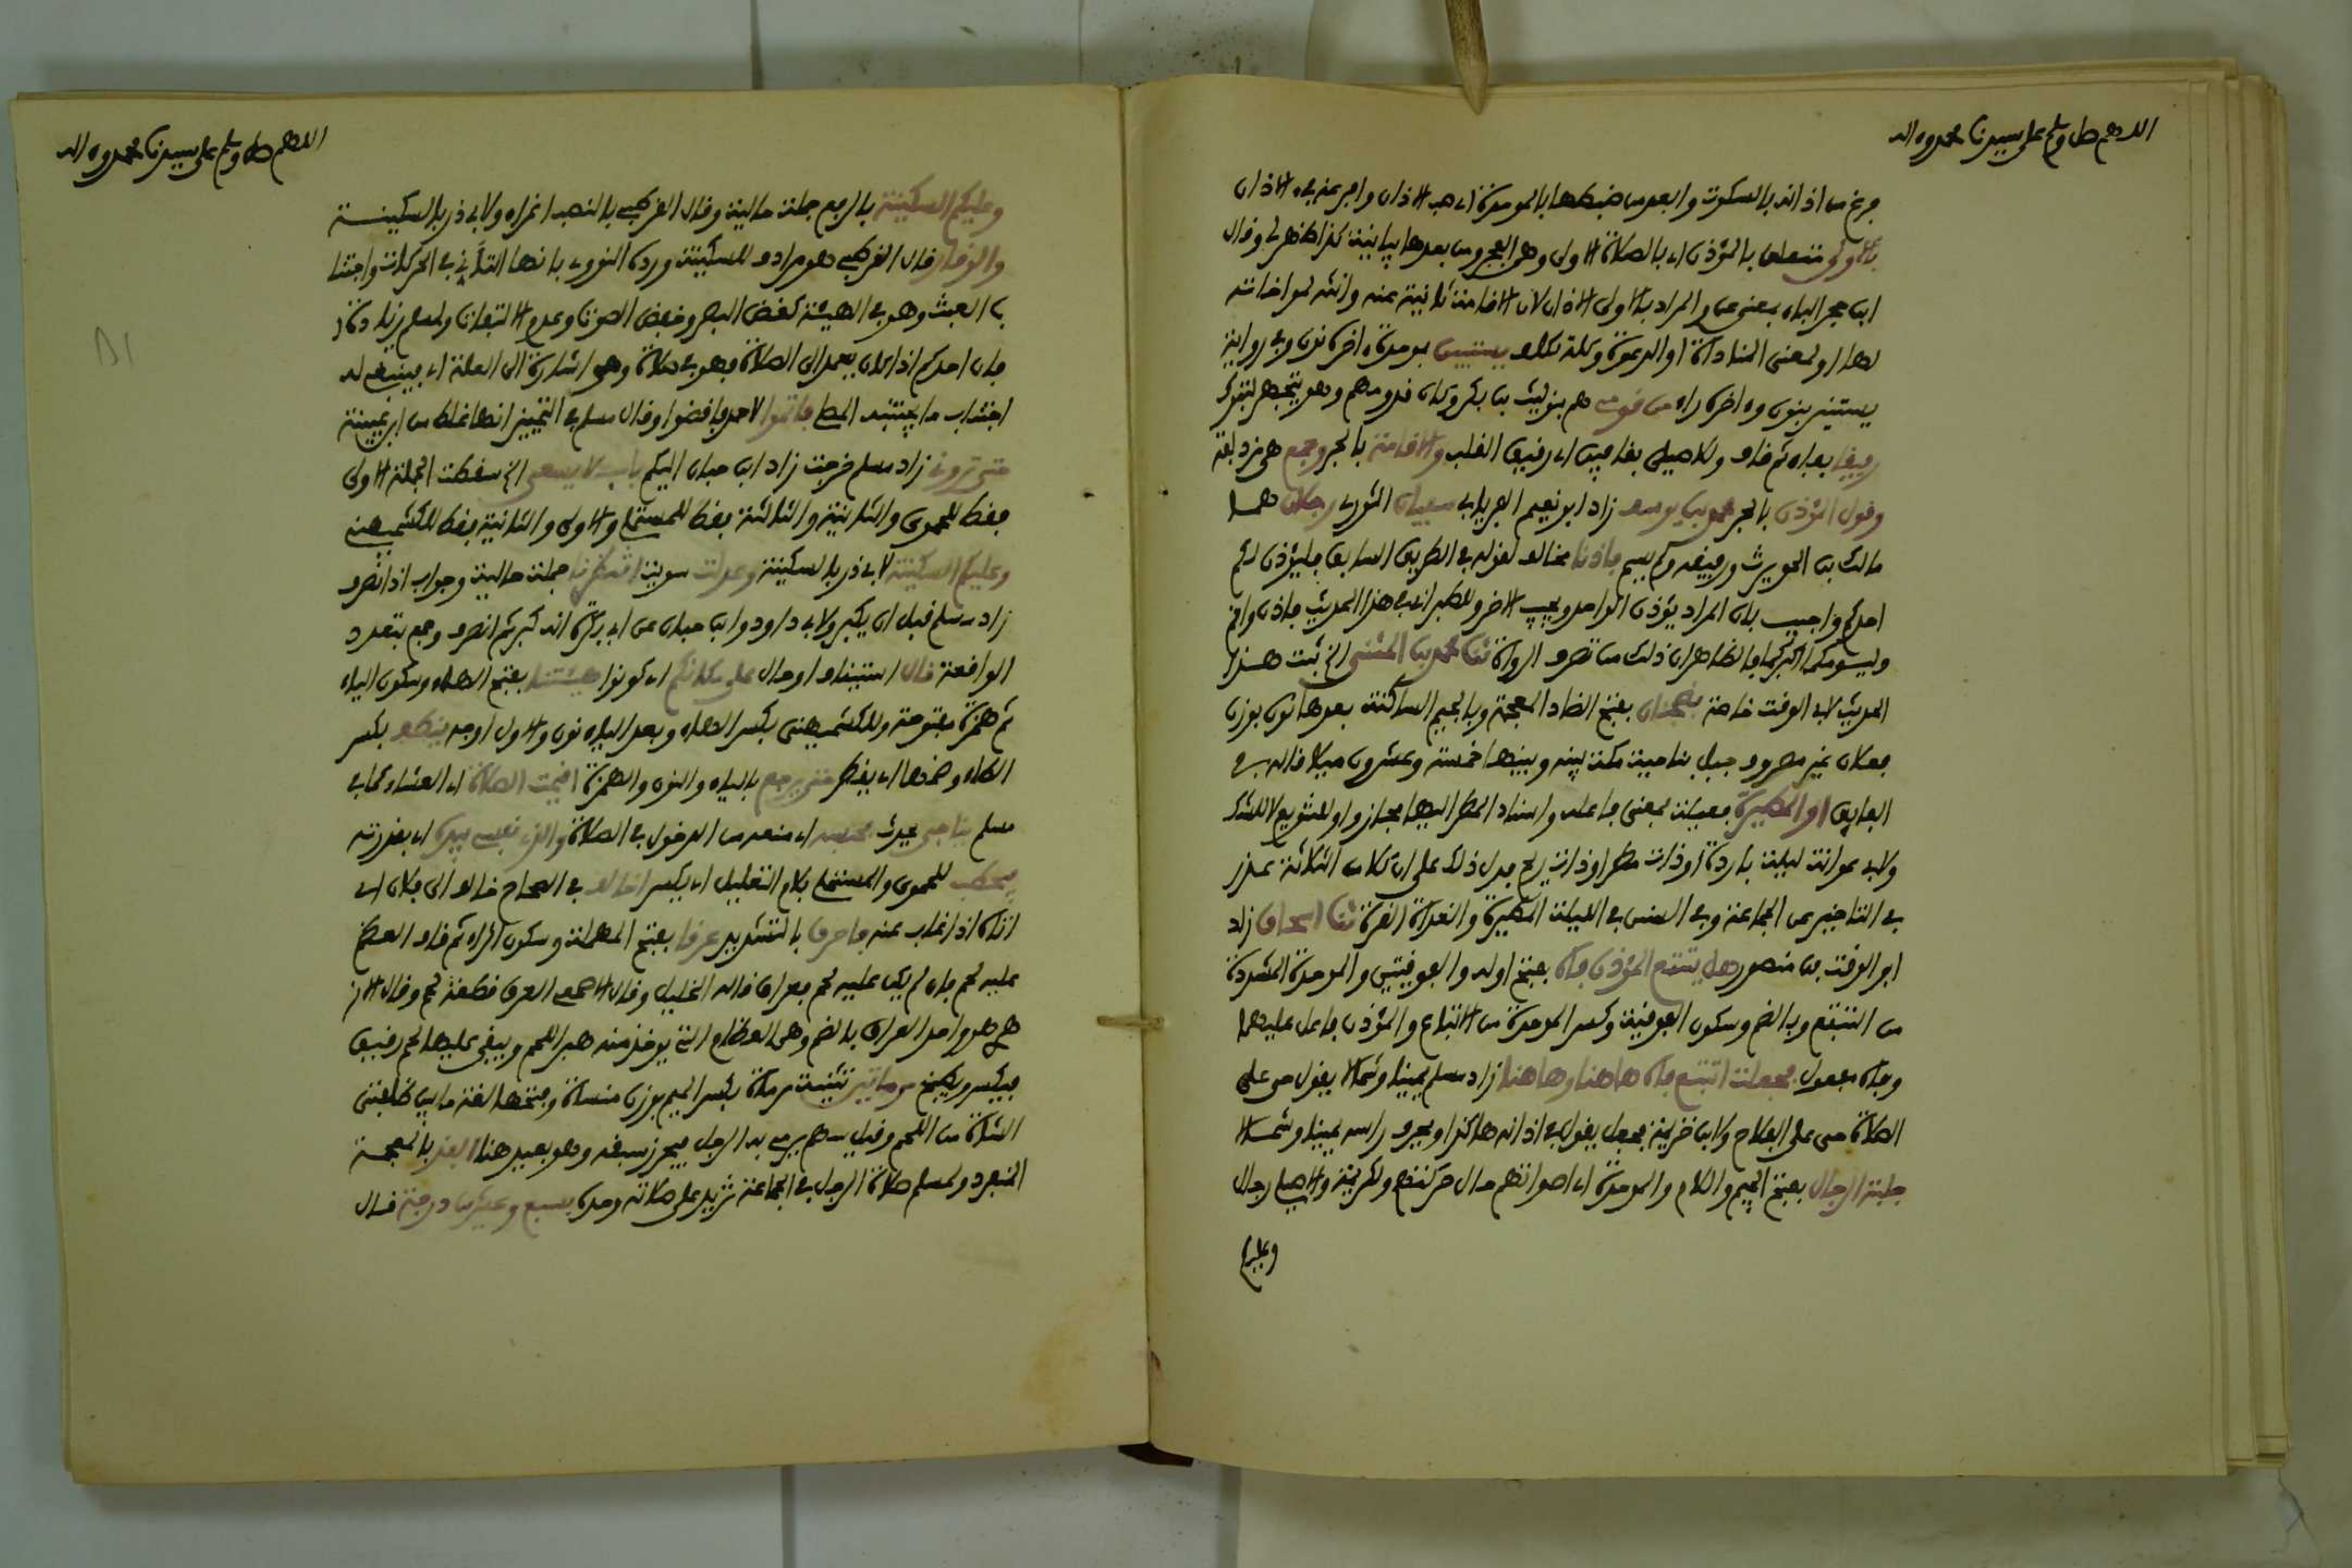 اللهم صل وسلم على سيدنا محمد وءاله
فرغ من اذانه بالسكوت وابعد من ضبطها بالموحدة اي صب الاذان وافرغه في الاذان
بالاولى متعلق بالمؤذن اي بالصلاة الاولى وهي الفجر ومن بعدها بيانية كذا ظهر لي وقال
ابن حجر الباء بمعنى عن والمراد بالاولى الاذان لان الاقامة ثانية عنه وانثه لمواخاته
لها او لمعنى المناداة او الدعوة وكله تكلف يستبين بموحدة ءاخره نون وفي رواية
يستنير بنون وءاخره راء من قومي هم بنو ليث بن بكر وكان قدومهم وهو يتجهز لتبوك
رفيقا بفاء ثم قاف وللاصيلي بقافين اي رقيق القلب والاقامة بالجر وجمع هي مزدلفة
وقول المؤذن بالجر محمد بن يوسف زاد ابو نعيم الفريابي سفيان الثوري رجلان هما
مالك بن الحويرث ورفيقه ولم يسم فاذنا مخالف لقوله في الطريق السابق فليؤذن لكم
احدكم واجيب بان المراد يؤذن الواحد ويجيب الاخر وللطبراني في هذا الحديث فاذن واقم
وليؤمكما اكبركما والظاهر ان ذلك من تصرف الرواة ثنا محمد بن المثنى الخ ثبت هذا
الحديث لابي الوقت خاصة بضجنان بفتح الضاد المعجمة وبالجيم الساكنة بعدها نون بوزن
فعلان غير مصروف جبل بناحية مكة بينه وبينها خمسة وعشرون ميلا قاله في
الفايق او المطيرة فعيلة بمعنى فاعلة واسناد المطر اليها مجاز واو للتنويع لا للشك
ولابي عوانة ليلة باردة او ذات مطر او ذات ريح فدل ذلك على ان كلا من الثلاثة عذر
في التاخير عن الجماعة وفي السنن في الليلة المطيرة والغداة القرة ثنا اسحاق زاد
ابو الوقت بن منصور هل يتتبع المؤذن فاه بفتح اوله والفوقيتين والموحدة المشددة
من التتبع وبالضم وسكون الفوقية وكسر الموحدة من الاتباع والمؤذن فاعل عليهما
وفاه مفعول فجعلت اتتبع فاه هاهنا وهاهنا زاد مسلم يمينا وشمالا يقول حي على
الصلاة حي على الفلاح ولابن خزيمة فجعل يقول في اذانه هاكذا ويحرف راسه يمينا وشمالا
جلبة الرجال بفتح الجيم واللام والموحدة اي اصواتهم حال حركتهم ولكريمة والاصيلي رجال
وعليكم
اللهم صل وسلم على سيدنا محمد وءاله
وعليكم السكينة بالرفع جملة حالية وقال القرطبي بالنصب اغراء ولابي ذر بالسكينة
والوقار قال القرطبي هو مرادف للسكينة ورده النووي بانها التأني في الحركات واجتنا
ب العبث وهو في الهيئة كغض البصر وخفض الصوت وعدم الالتفات ولمسلم زيادة
فان احدكم اذا كان يعمد الى الصلاة فهو في صلاة وهي اشارة الى العلة اي فينبغي له
اجتناب ما يجتنبه المصلي فاتموا لاحمد فاقضوا وقال مسلم في التمييز انها غلط من ابن عيينة
حتى تروني زاد مسلم خرجت زاد ابن حبان اليكم باب لا يسعى الخ سقطت الجملة الاولى
فقط للحموي والثانية والثالثة فقط للمستملي والاولى والثانية فقط للكشميهني
وعليكم السكينة لابي ذر بالسكينة وعدلت سويت انتظرنا جملة حالية وجواب اذا انصرف
زاد مسلم قبل ان يكبر ولابي داود وابن حبان عن ابي بكرة انه كبر ثم انصرف وجمع بتعدد
الواقعة قال استيناف او حال على مكانكم اي كونوا هيئتنا بفتح الهاء وسكون الياء
ثم همزة مفتوحة وللكشميهني بكسر الهاء وبعد الياء نون والاول اوجه ينطف بكسر
الطاء وضمها اي يقطر حتى يرجع بالياء والنون والهمزة اقيمت الصلاة اي العشاء كما في
مسلم يناجي يحدث فحبسه اي منعه من الدخول في الصلاة والذي نفسي بيده اي بقدرته
يحطب للحموي والمستملي بلام التعليل اي يكسر اخالف في الصحاح خالف الى فلان اي
اتاه اذا غاب عنه فاحرق بالتشديد عرقا بفتح المهملة وسكون الراء ثم قاف العظم
عليه لحم فان لم يكن عليه لحم فعراق قاله الخليل وقال الاصمعي العرق قطعة لحم وقال الاز
هري هو واحد العراق بالضم وهي العظام التي يؤخذ منه هبر اللحم ويبقى عليها لحم رقيق
فيكسر ويطبخ مرماتين تثنية مرماة بكسر الميم بوزن منساة وفتحها لغة ما بين ظلفتي
الشاة من اللحم وقيل سهم يرمي به الرجل فيحرز سبقه وهو بعيد هنا الفذ بالمعجمة
المنفرد ولمسلم صلاة الرجل في الجماعة تزيد على صلاته وحده بسبع وعشرين درجة قال